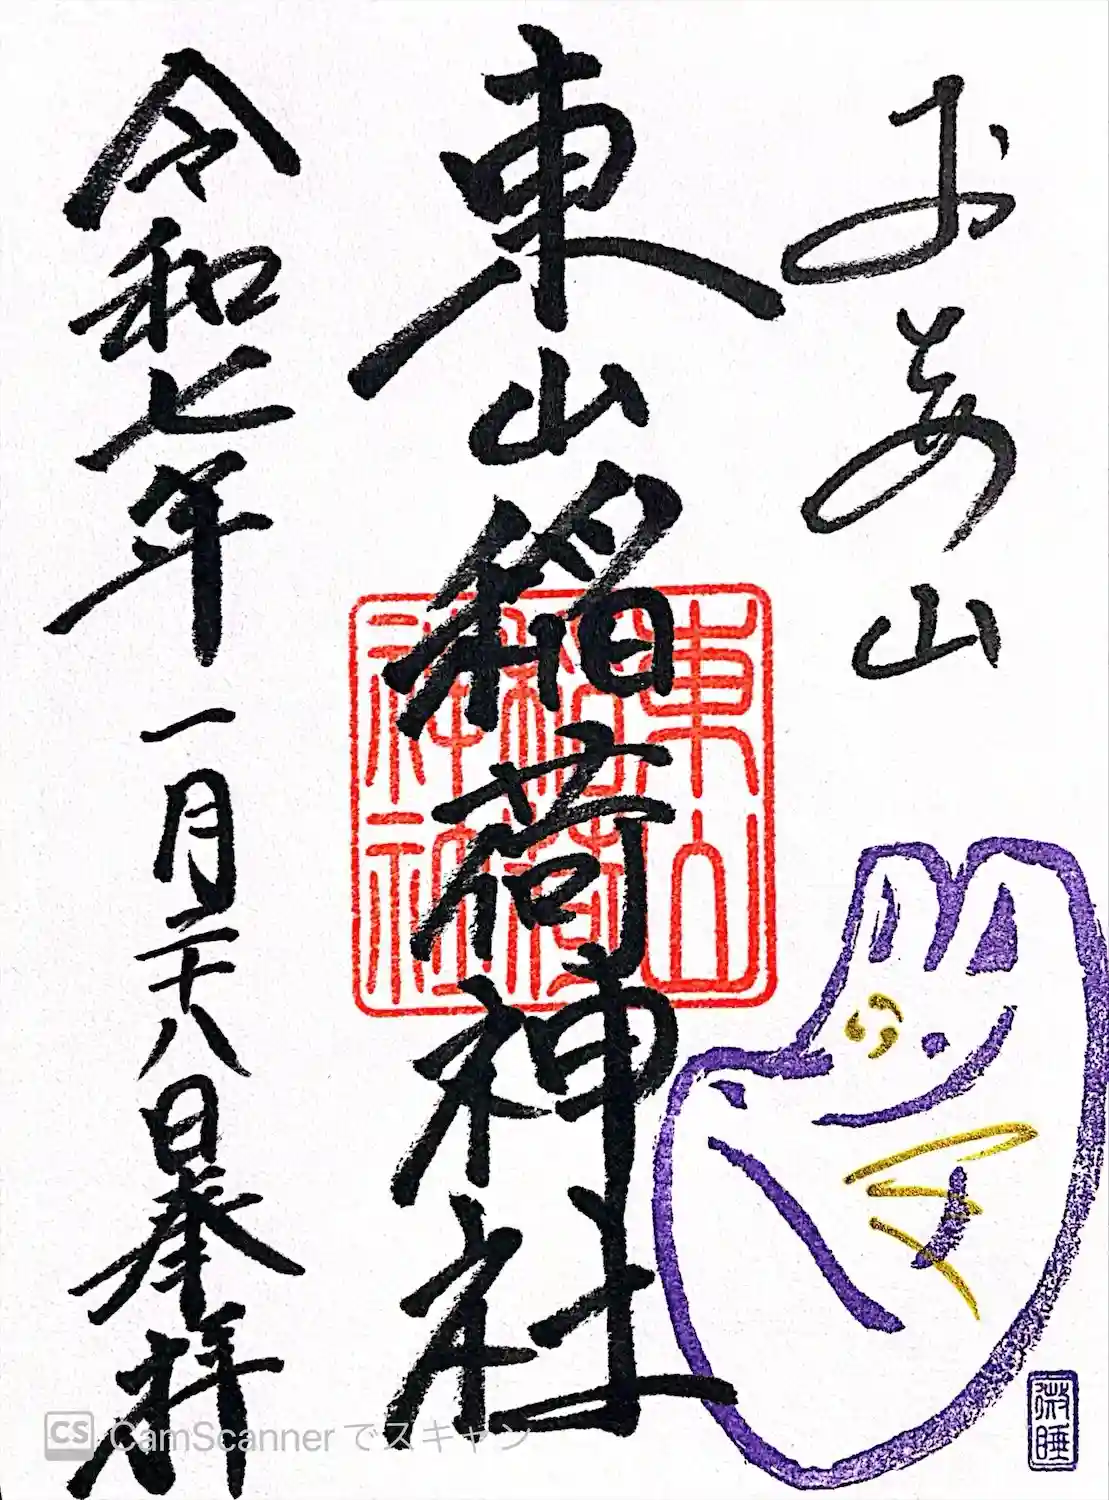 お山
東山稲荷神社
令和七年一月二十八日奉拝
東山
稲荷
神社
微睡
CS CamScanner でスキャン